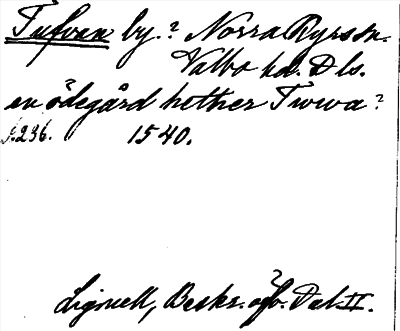 Tufvan by.? Norra Ryrs sn.
Valbo hd. Dls.
en ödegård hether Twwa?
s. 236. 1540.
Lignell, Beskr. öfv. Dal. II.